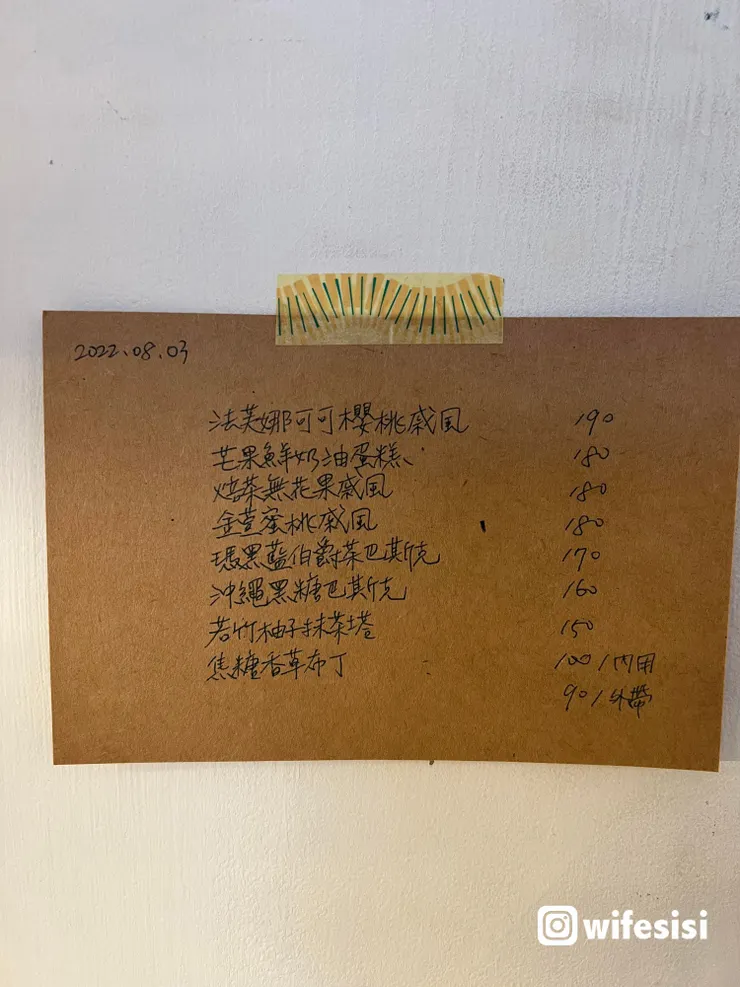 2022.08.03
法芙娜可可櫻桃戚風 190
芒果鮮奶油蛋糕 180
焙茶無花果戚風 180
金萱蜜桃戚風 180
瑪黑藍伯爵茶巴斯克 170
沖繩黑糖巴斯克 160
若竹柚子抹茶塔 150
焦糖香草布丁 100/內用
90/外帶
wifesisi